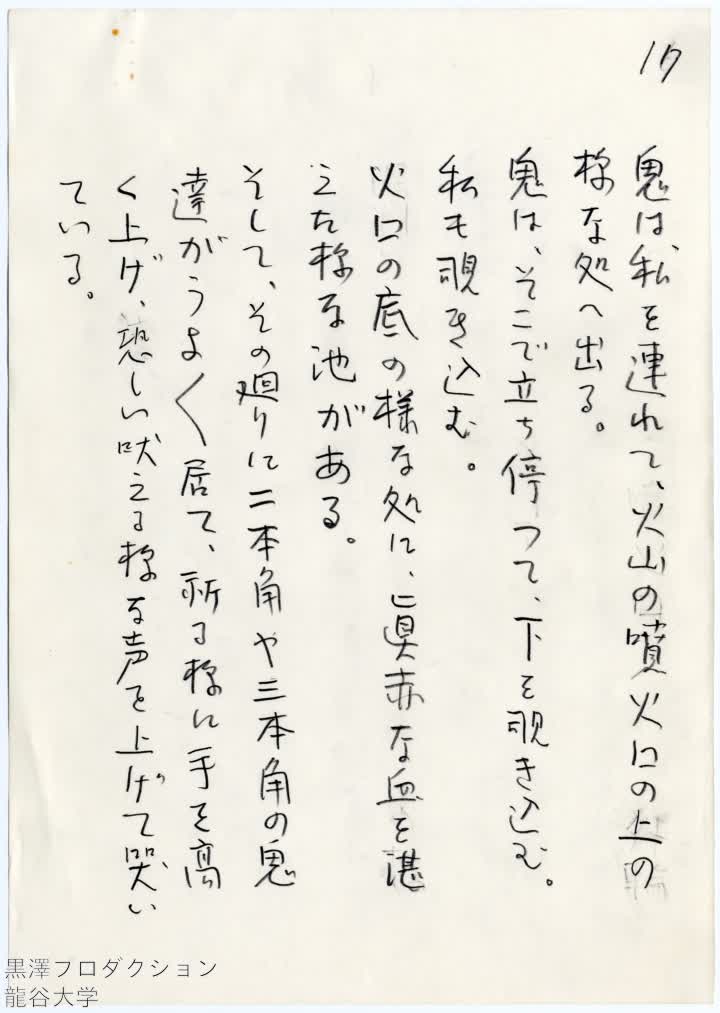 17
鬼は、私を連れて、火山の噴火口の上の
様な処へ出る。
鬼は、そこで立ち停つて、下を覗き込む。
私も覗き込む。
火口の底の様な処に、眞赤な血を湛
えた様な池がある。
そして、その廻りに二本角や三本角の鬼
達がうよ〱居て、祈る様に手を高
く上げ、恐しい吠える様な声を上げて哭い
ている。
黒澤プロダクション
龍谷大学